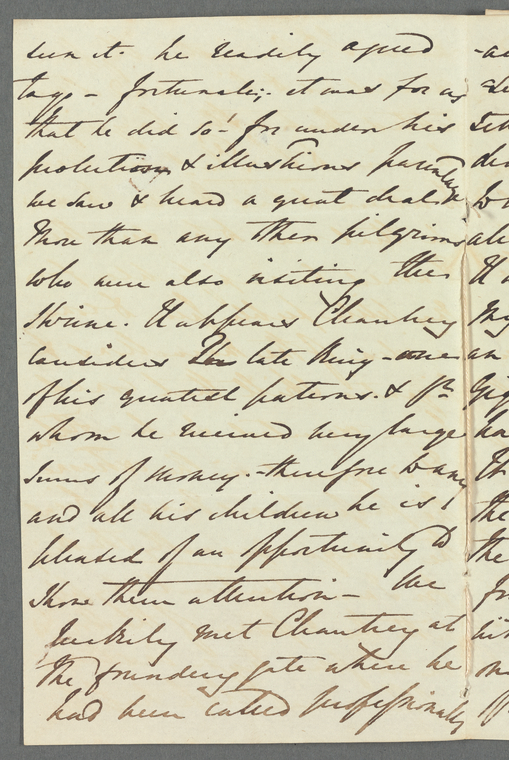 seen it. he readily agreed -a
to go - fortunate; it was for us
that he did so! for under his
protection & illustrious
we saw & heard a great deal
more than any other pilgrims
who were also visiting the
Shrine. It appears Chantrey
Considers the late King - one an
of his greatest patrons. & fm
whom he received very large ha
Sums of money. - therefore to any Th
and all his children he is the
pleased of an opportunity to the
show them attention - We
luckily met Chantrey at
The foundery gate where he
had been called professionally